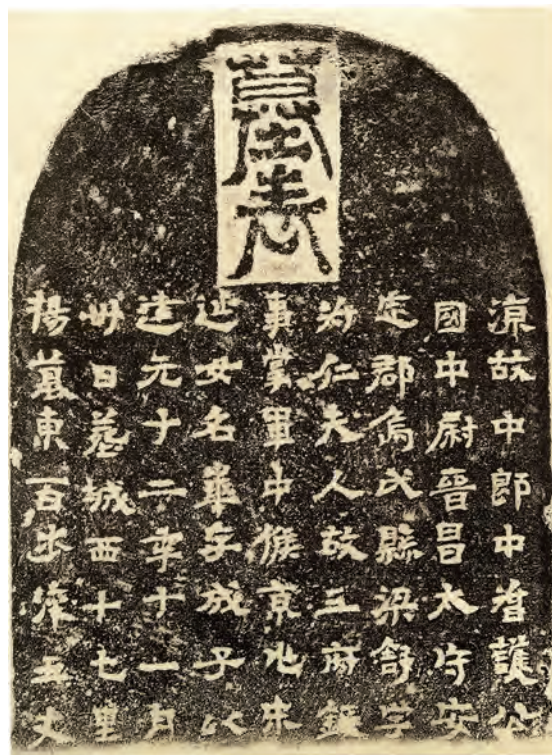 墓表
涼故中郎中督護公
國中尉晉昌太守安
定郡烏氏縣梁舒字
叔仁夫人故三府錄
事掌軍中候京兆宋
延女名華字成子以
建元十二年十一月
卅日葬城西十七里
楊墓東百步深五丈